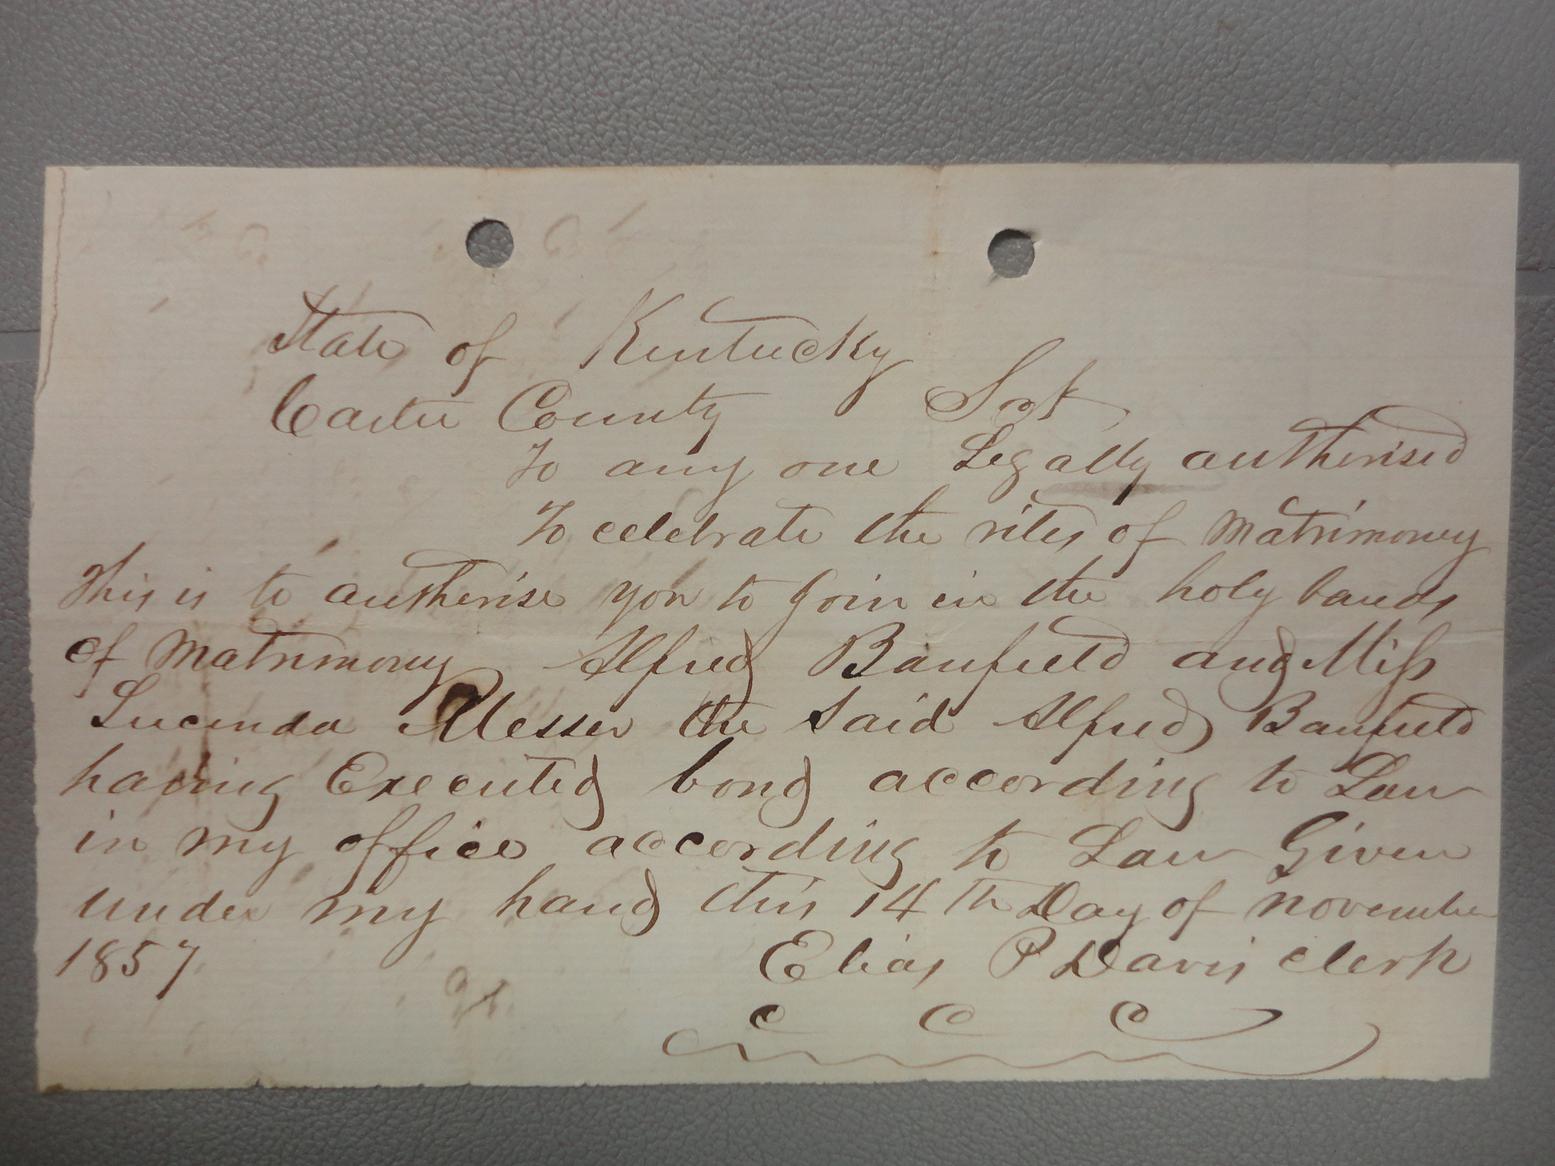 State of Kentucky
Carter County Sct
To any one Legally autherised
To celebrate the rites of Matrimoney
This is to autherise you to Join in the holy bands
of Matrimony Alfred Banfield and Miss
Lucinda Messer the said Alfred Banfield
having Executed bond according to Law
in my office according to Law Given
under my hand this 14th Day of november
1857 Elias P Davis clerk
C C C